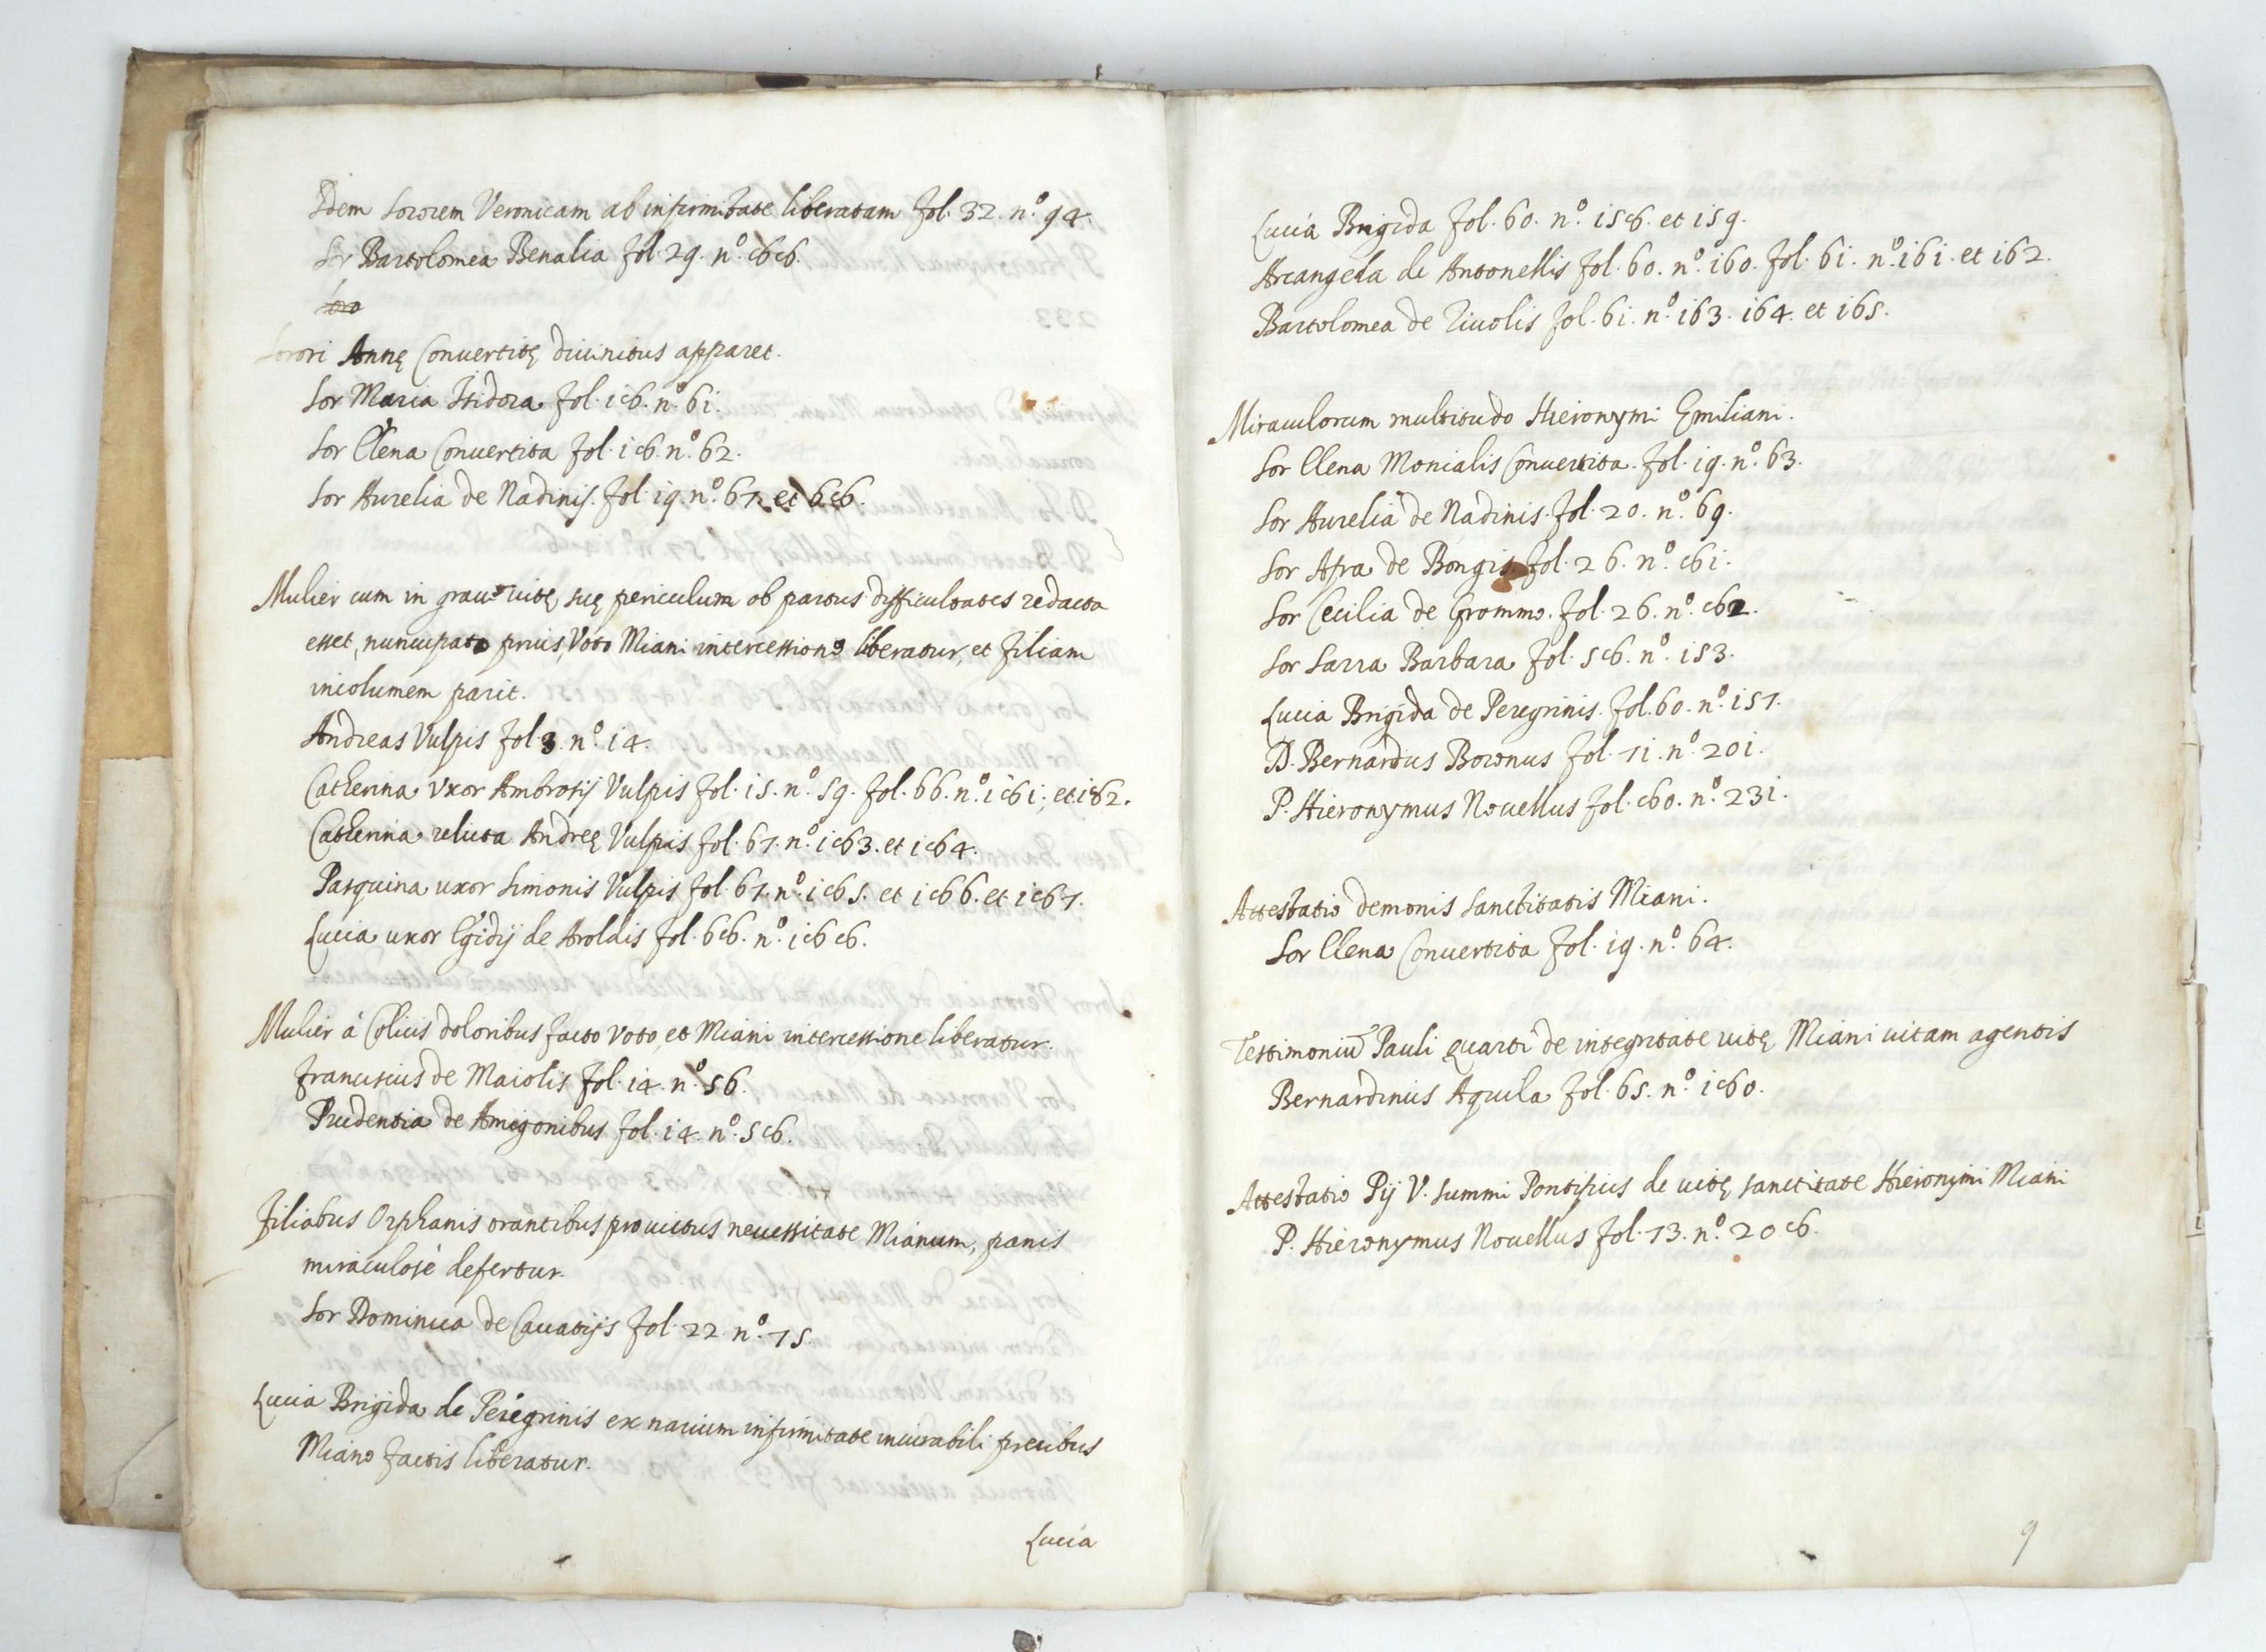 Idem Sororem Veronicam ab infirmitate liberatam fol. 32. nº. 94.
Sor Bartolomea Benalia fol. 29. nº. 88.
Sorori Annę Conuertitę diuinitus apparet.
Sor Maria Isidora fol. 18. nº. 61.
Sor Elena Conuertita fol. 18. nº. 62.
Sor Aurelia de Nadinis. fol. 19. nº. 67. et 68.
Mulier cum in graue uitę suę periculum ob partus difficultates redacta
esset, nuncupato prius, Voto Miani intercessione liberatur, et filiam
incolumem parit.
Andreas Vulpis fol. 3. nº. 14.
Catherina Vxor Ambrosij Vulpis fol. 15. nº. 59. fol. 66. nº. 181; et 182.
Catherina relicta Andreę Vulpis fol. 67. nº. 183. et 184.
Pasquina uxor Simonis Vulpis fol. 67. nº. 185. et 186. et 187.
Lucia uxor Egidij de Aroldis fol. 68. nº. 188.
Mulier à Colicis doloribus facto voto, et Miani intercessione liberatur.
Franciscus de Maiolis fol. 14. nº. 56.
Prudentia de Amigonibus fol. 14. nº. 58.
Filiabus Orphanis orantibus prouictus necessitate Mianum, panis
miraculosè defertur.
Sor Dominica de Cauatijs fol. 22. nº. 75.
Lucia Brigida de Peregrinis ex narium infirmitate incurabili precibus
Miano factis liberatur.
Lucia
Lucia Brigida fol. 60. nº. 158. et 159.
Arcangela de Antonellis fol. 60. nº. 160. fol. 61. nº. 161. et 162.
Bartolomea de Tiuolis fol. 61. nº. 163. 164. et 165.
Miraculorum multitudo Hieronymi Emiliani.
Sor Elena Monialis Conuertita. fol. 19. nº. 63.
Sor Aurelia de Nadinis. fol. 20. nº. 69.
Sor Afra de Bongis. fol. 26. nº. 81.
Sor Cecilia de Grommo. fol. 26. nº. 82.
Sor Sarra Barbara fol. 58. nº. 153.
Lucia Brigida de Peregrinis. fol. 60. nº. 157.
D. Bernardus Boronus fol. 71. nº. 201.
P. Hieronymus Nouellus fol. 80. nº. 231.
Attestatio demonis sanctitatis Miani.
Sor Elena Conuertita fol. 19. nº. 64.
Testimoniũ Pauli quarti de integritate uitę Miani uitam agentis
Bernardinus Aquila fol. 65. nº. 180.
Attestatio Pij V. summi Pontificis de uitę sanctitate Hieronymi Miani
P. Hieronymus Nouellus fol. 73. nº. 208.
9